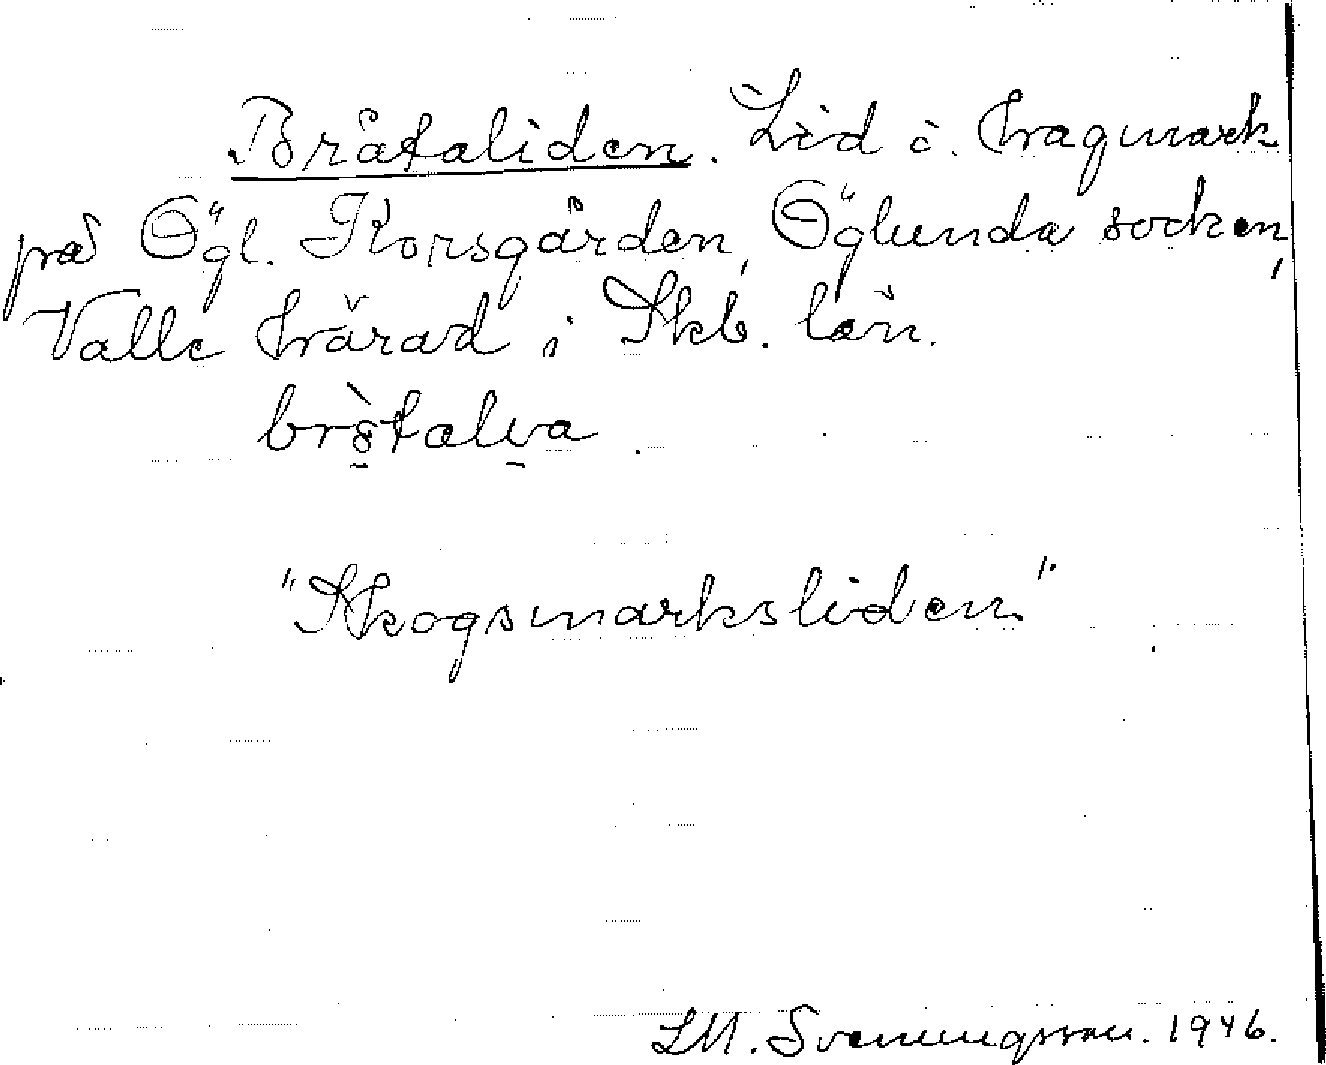 Bråtaliden. Lid i hagmark
på Ögl. Korsgården, Öglunda socken,
Valle härad i Skb. län.
"Skogsmarksliden"
LM. Svenungsson. 1946.